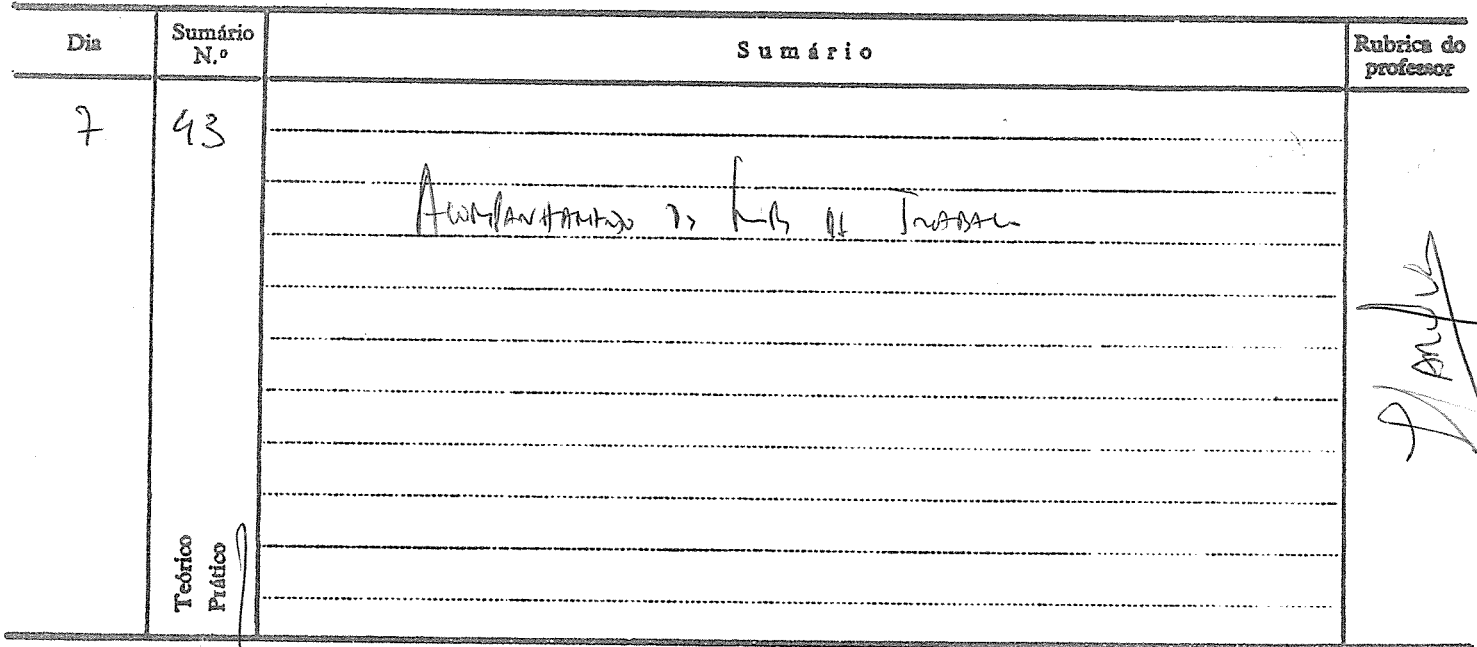 Dia
Sumário N.º
Sumário
Rubrica do professor
7
43
Acompanhamento de
de Trabalho
Teórico
Prático